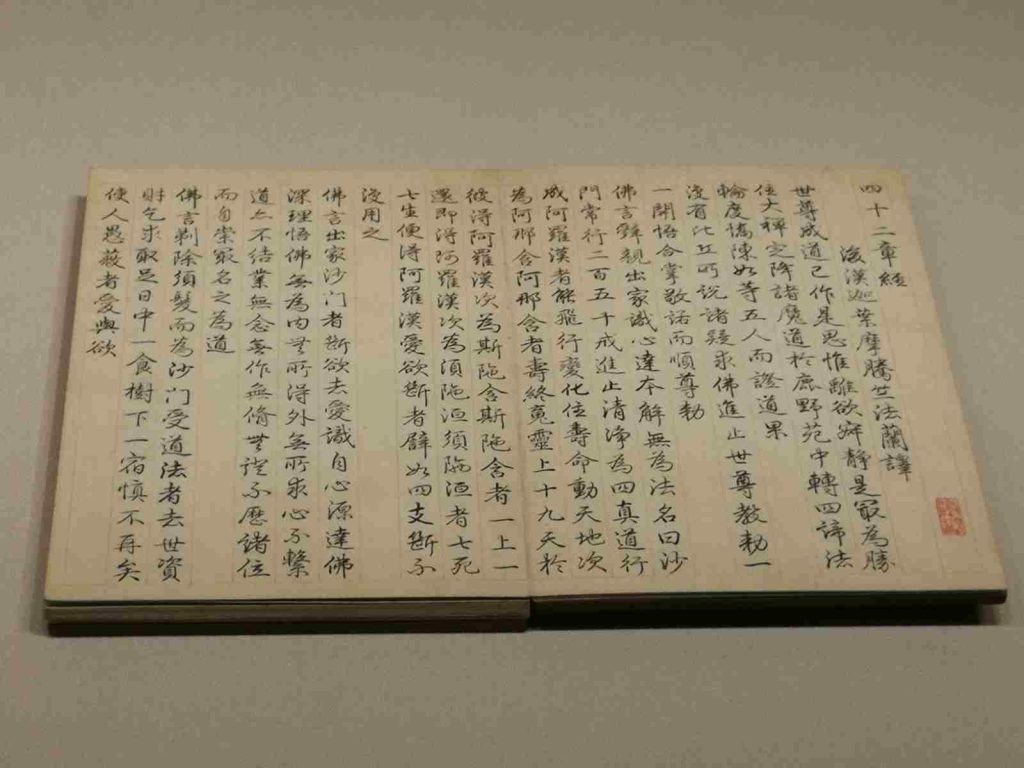 四十二章經
後漢迦葉摩騰竺法蘭譯
世尊成道已作是思惟離欲寂靜是最為勝
住大禪定降諸魔道於鹿野苑中轉四諦法
輪度憍陳如等五人而證道果
復有比丘所說諸疑求佛進止世尊教勅一
一開悟合掌敬諾而順尊勅
佛言辭親出家識心達本解無為法名曰沙
門常行二百五十戒進止清淨為四真道行
成阿羅漢者能飛行變化位壽命動天地次
為阿那含阿那含者壽終竟靈上十九天於
彼得阿羅漢次為斯陁含斯陁含者一上一
還即得阿羅漢次為須陁洹須陁洹者七死
七生便得阿羅漢愛欲斷者譬如四支斷不
復用之
佛言出家沙门者斷欲去愛識自心源達佛
深理悟佛無為内無所得外無所求心不繫
道亦不結業無念無作無脩無證不歷諸位
而自崇最名之為道
佛言剃除須髮而為沙门受道法者去世資
財乞求取足日中一食樹下一宿慎不再矣
使人愚蔽者愛與欲